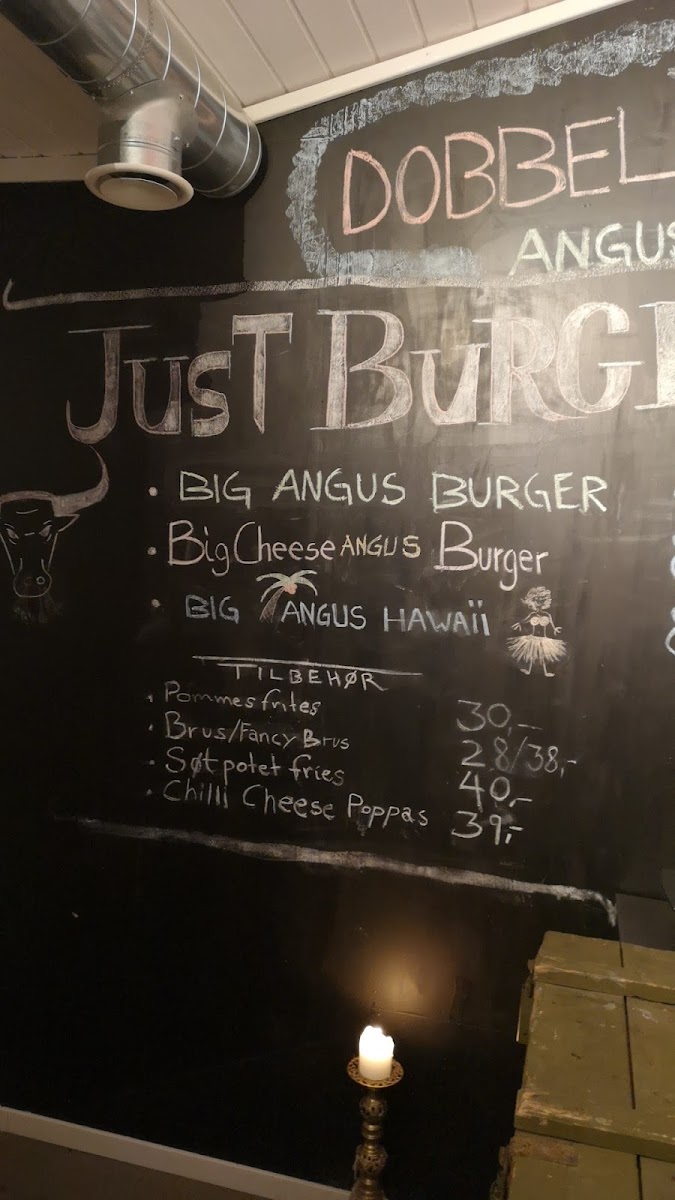 DOBBEL
ANGUS
JUST BURGE
• BIG ANGUS BURGER
• Big Cheese ANGUS Burger
• BIG ANGUS HAWAïi
TILBEHØR
• Pommes frites 30,-
• Brus/Fancy Brus 28/38,-
• Søt potet fries 40,-
• Chilli Cheese Poppas 39,-